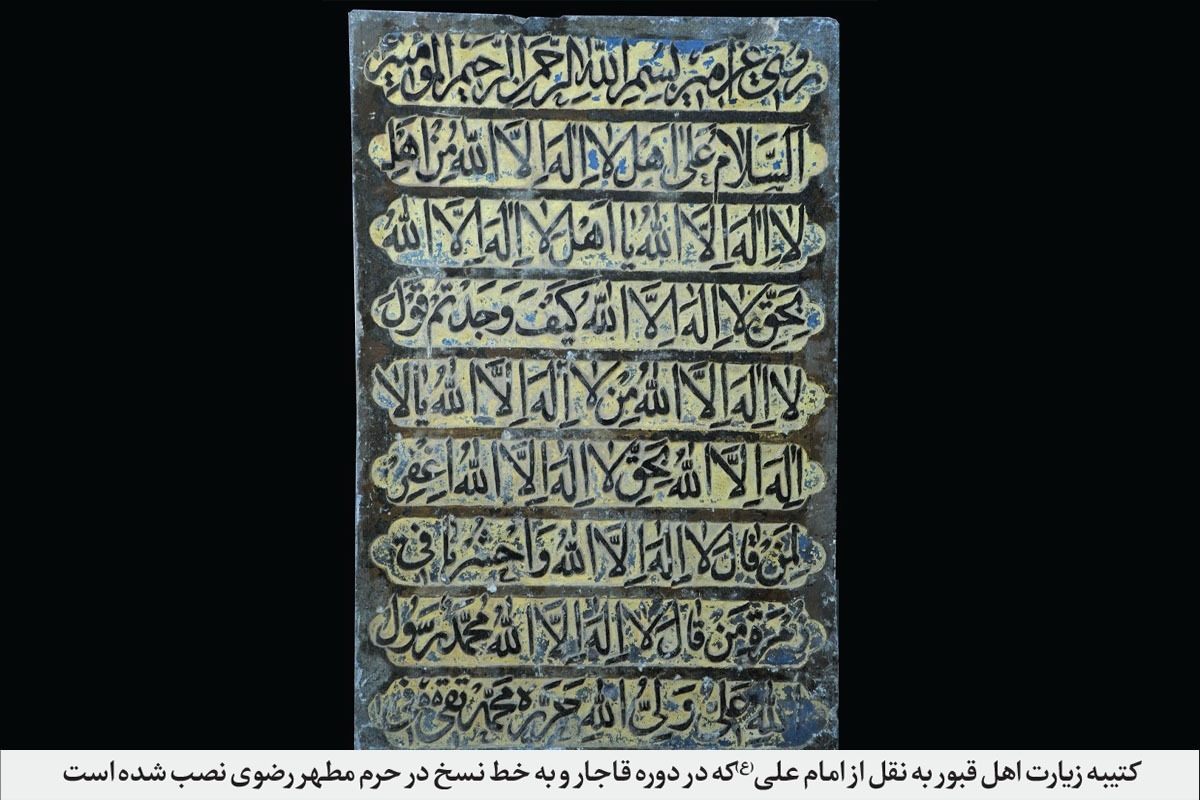 روی عن امیر بسم الله الرحمن الرحیم المومنین
اَلسَّلامُ عَلیٰ اَهْلِ لا اِلٰهَ اِلَّا اللهُ مِنْ اَهْلِ
لا اِلٰهَ اِلَّا اللهُ یا اَهْلَ لا اِلٰهَ اِلَّا اللهُ
بِحَقِّ لا اِلٰهَ اِلَّا اللهُ کَیْفَ وَجَدْتُمْ قَوْلَ
لا اِلٰهَ اِلَّا اللهُ مِنْ لا اِلٰهَ اِلَّا اللهُ یا لا
اِلٰهَ اِلَّا اللهُ بِحَقِّ لا اِلٰهَ اِلَّا اللهُ اِغْفِرْ
لِمَنْ قالَ لا اِلٰهَ اِلَّا اللهُ وَاحْشُرْنا فی
زُمْرَةِ مَنْ قالَ لا اِلٰهَ اِلَّا اللهُ مُحَمَّدٌ رَسُولُ
اللهِ عَلِیٌّ وَلِیُّ اللهِ حَرَّرَهُ مُحَمَّد تقی فی
کتیبه زیارت اهل قبور به نقل از امام علی(ع) که در دوره قاجار و به خط نسخ در حرم مطهر رضوی نصب شده است